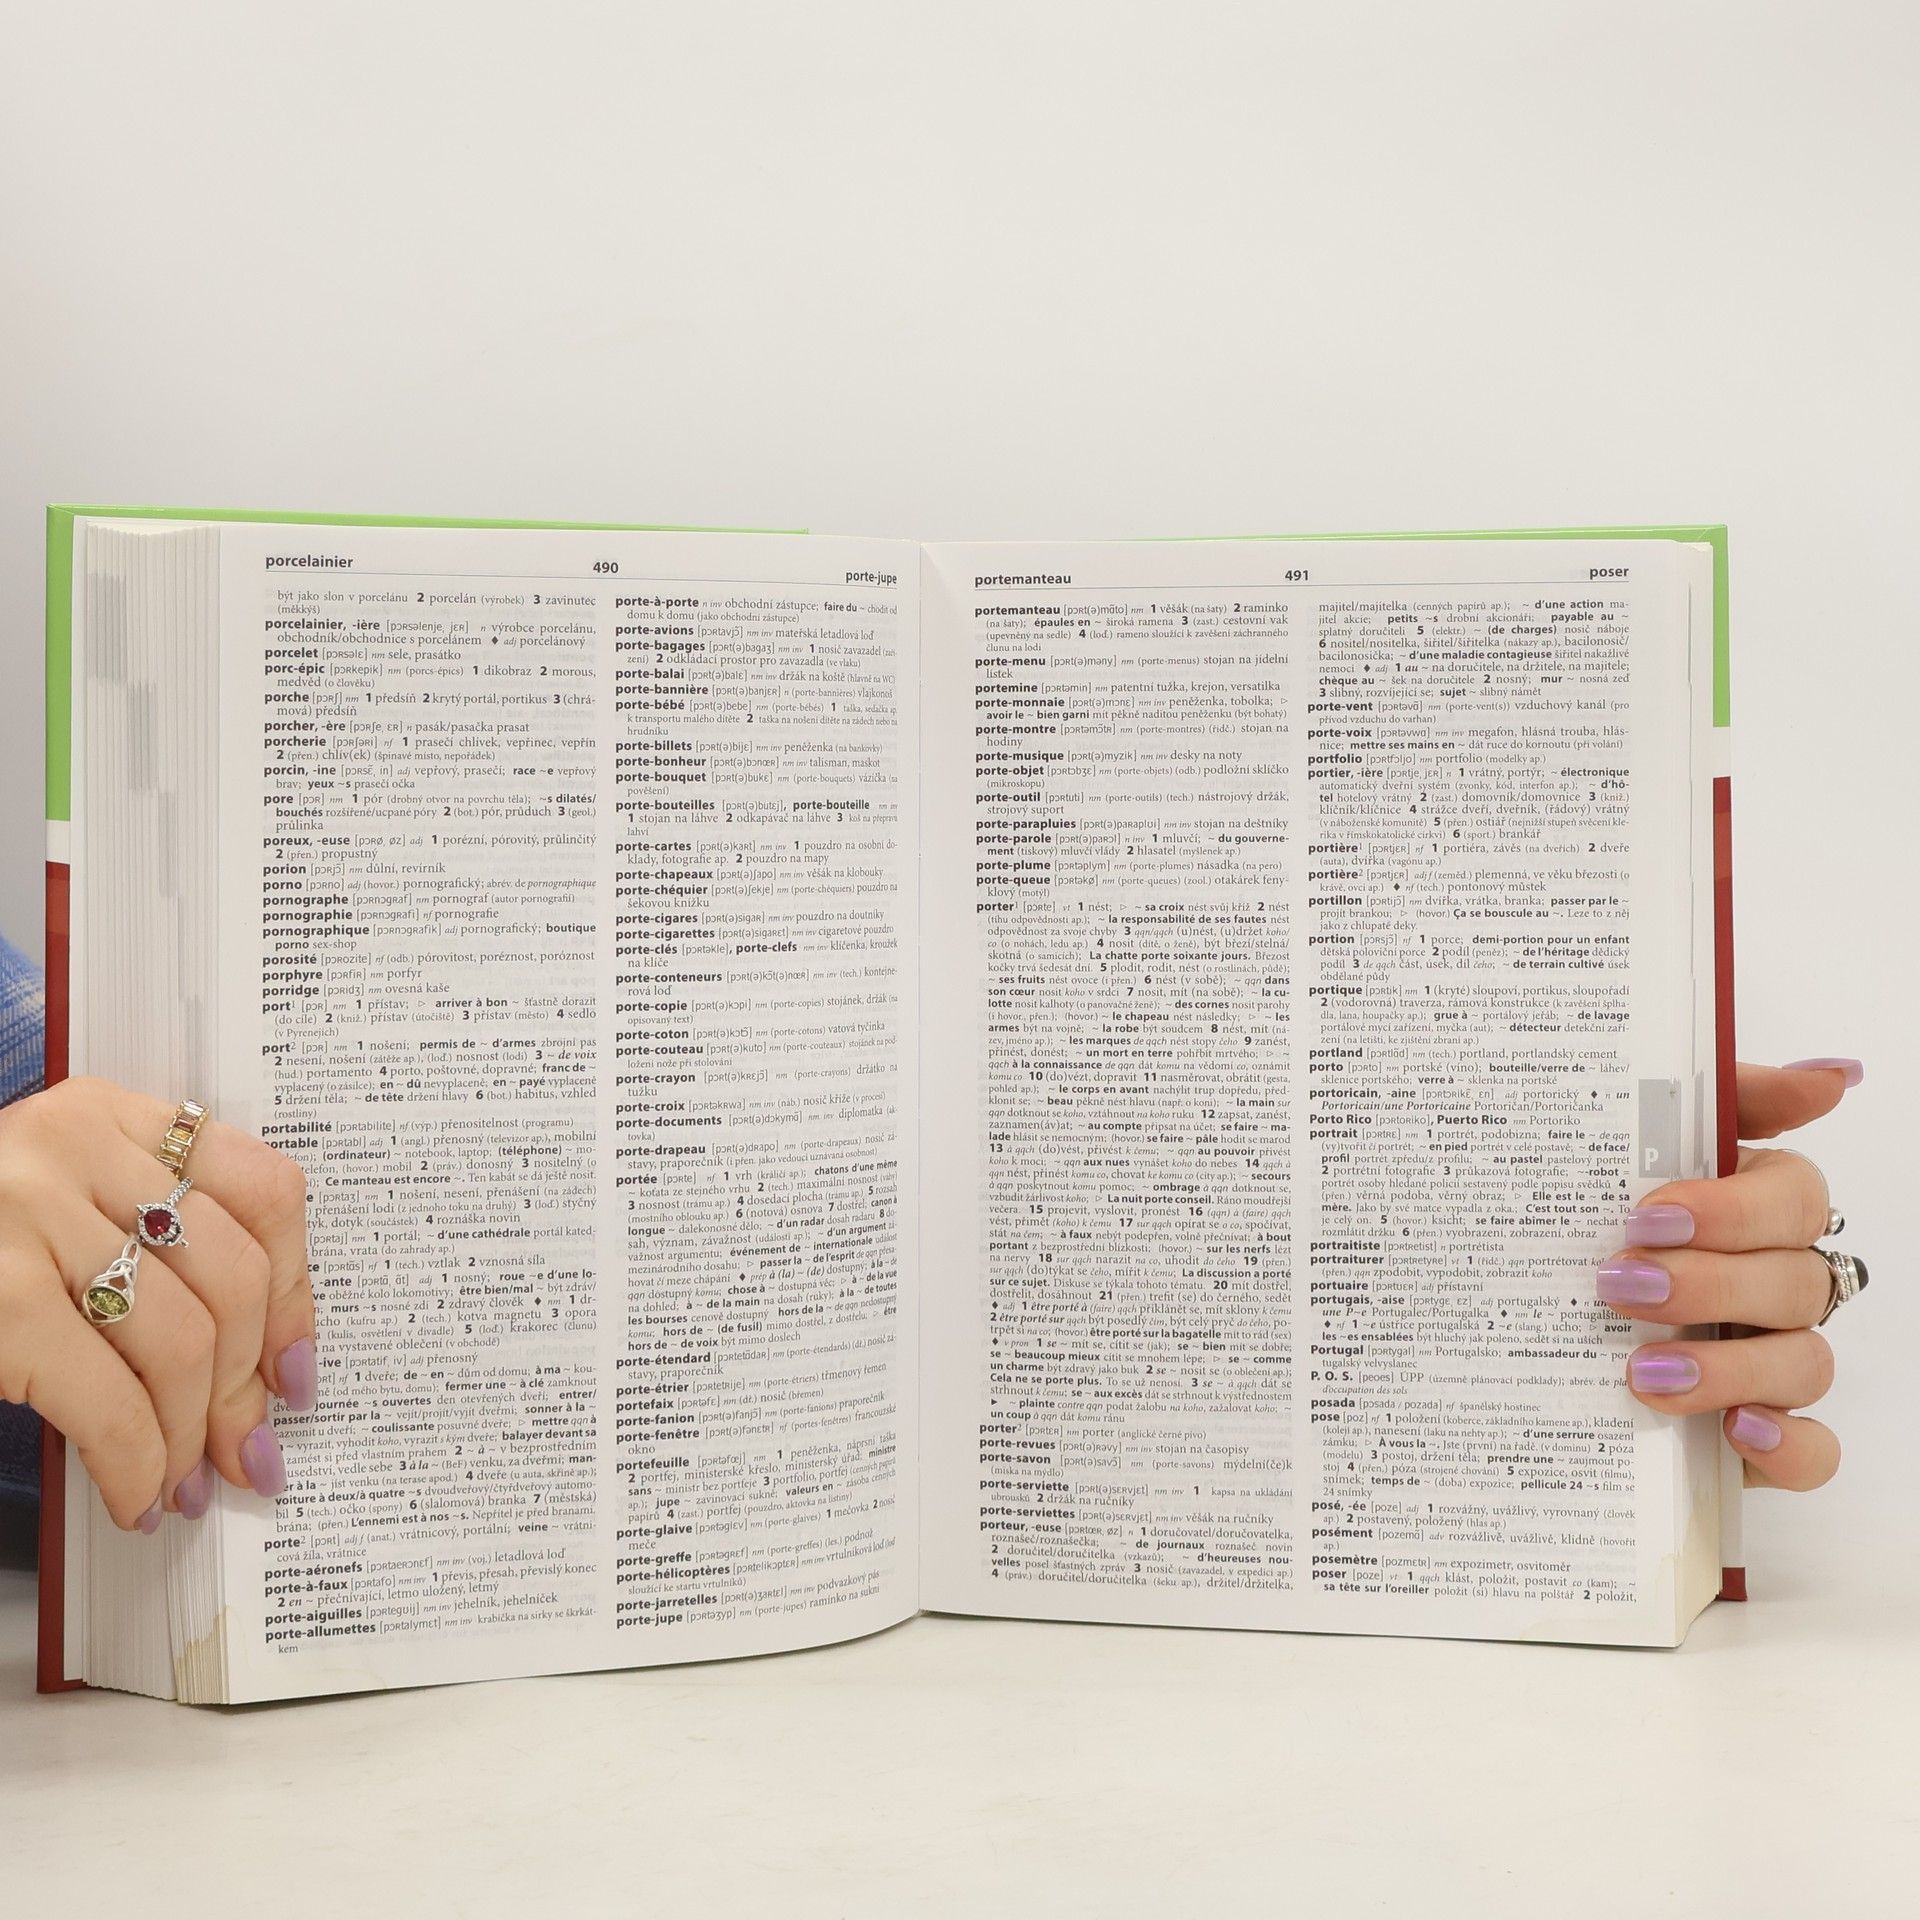 porcelainier 490 porte-jupe
být jako slon v porcelánu 2 porcelán (výrobek) 3 zavinutec
(měkkýš)
porcelainier, -ière [pɔʀsəlenje, jɛʀ] n výrobce porcelánu,
obchodník/obchodnice s porcelánem ♦ adj porcelánový
porcelet [pɔʀsəlɛ] nm sele, prasátko
porc-épic [pɔʀkepik] nm (porcs-épics) 1 dikobraz 2 morous,
medvěd (o člověku)
porche [pɔʀʃ] nm 1 předsíň 2 krytý portál, portikus 3 (chrá-
mová) předsíň
porcher, -ère [pɔʀʃe, ɛʀ] n pasák/pasačka prasat
porcherie [pɔʀʃəʀi] nf 1 prasečí chlívek, vepřinec, vepřín
2 (přen.) chlív(ek) (špinavé místo, nepořádek)
porcin, -ine [pɔʀsɛ̃, in] adj vepřový, prasečí; race ~e vepřový
brav; yeux ~s prasečí očka
pore [pɔʀ] nm 1 pór (drobný otvor na povrchu těla); ~s dilatés/
bouchés rozšířené/ucpané póry 2 (bot.) pór, průduch 3 (geol.)
průlinka
poreux, -euse [pɔʀø, øz] adj 1 porézní, pórovitý, průlinčitý
2 (přen.) propustný
porion [pɔʀjɔ̃] nm důlní, revírník
porno [pɔʀno] adj (hovor.) pornografický; abrév. de pornographique
pornographe [pɔʀnɔgʀaf] nm pornograf (autor pornografií)
pornographie [pɔʀnɔgʀafi] nf pornografie
pornographique [pɔʀnɔgʀafik] adj pornografický; boutique
porno sex-shop
porosité [pɔʀozite] nf (odb.) pórovitost, poréznost, poróznost
porphyre [pɔʀfiʀ] nm porfyr
porridge [pɔʀidʒ] nm ovesná kaše
port¹ [pɔʀ] nm 1 přístav; ▷ arriver à bon ~ šťastně dorazit
(do cíle) 2 (kniž.) přístav (útočiště) 3 přístav (město) 4 sedlo
(v Pyrenejích)
port² [pɔʀ] nm 1 nošení; permis de ~ d'armes zbrojní pas
2 nesení, nošení (zátěže ap.), (loď.) nosnost (lodi) 3 ~ de voix
(hud.) portamento 4 porto, poštovné, dopravné; franc de ~
vyplacený (o zásilce); en ~ dû nevyplaceně; en ~ payé vyplaceně
5 držení těla; ~ de tête držení hlavy 6 (bot.) habitus, vzhled
(rostliny)
portabilité [pɔʀtabilite] nf (výp.) přenositelnost (programu)
portable [pɔʀtabl] adj 1 (angl.) přenosný (televizor ap.), mobilní
(ordinateur) ~ notebook, laptop; (téléphone) ~ mo-
telefon, (hovor.) mobil 2 (práv.) donosný 3 nositelný (o
Ce manteau est encore ~. Ten kabát se dá ještě nosit.
nm 1 nošení, nesení, přenášení (na zádech)
přenášení lodi (z jednoho toku na druhý) 3 (loď.) styčný
dotyk (součástek) 4 roznáška novin
nm 1 portál; ~ d'une cathédrale portál kated-
brána, vrata (do zahrady ap.)
nf 1 (tech.) vztlak 2 vznosná síla
-ante [pɔʀtɑ̃, ɑ̃t] adj 1 nosný; roue ~e d'une lo-
oběžné kolo lokomotivy; être bien/mal ~ být zdráv/
murs ~s nosné zdi 2 zdravý člověk ♦ nm 1 dr-
ucho (kufru ap.) 2 (tech.) kotva magnetu 3 opora
(kulis, osvětlení v divadle) 5 (loď.) krakorec (člunu)
na vystavené oblečení (v obchodě)
-ive [pɔʀtatif, iv] adj přenosný
nf 1 dveře; de ~ en ~ dům od domu; à ma ~ kou-
(od mého bytu, domu); fermer une ~ à clé zamknout
journée ~s ouvertes den otevřených dveří; entrer/
passer/sortir par la ~ vejít/projít/vyjít dveřmi; sonner à la ~
zazvonit u dveří; ~ coulissante posuvné dveře; ▷ mettre qqn à
~ vyrazit, vyhodit koho, vyrazit s kým dveře; balayer devant sa
zamést si před vlastním prahem 2 ~ à ~ v bezprostředním
sousedství, vedle sebe 3 à la ~ (BeF) venku, za dveřmi; man-
ger à la ~ jíst venku (na terase apod.) 4 dveře (u auta, skříně ap.);
voiture à deux/à quatre ~s dvoudveřový/čtyřdveřový automo-
bil 5 (tech.) očko (spony) 6 (slalomová) branka 7 (městská)
brána; (přen.) L'ennemi est à nos ~s. Nepřítel je před branami.
porte² [pɔʀt] adj f (anat.) vrátnicový, portální; veine ~ vrátni-
cová žíla, vrátnice
porte-aéronefs [pɔʀtaeʀɔnɛf] nm inv (voj.) letadlová loď
porte-à-faux [pɔʀtafo] nm inv 1 převis, přesah, převislý konec
2 en ~ přečnívající, letmo uložený, letmý
porte-aiguilles [pɔʀtegɥij] nm inv jehelník, jehelníček
porte-allumettes [pɔʀtalymɛt] nm inv krabička na sirky se škrkát-
kem
porte-à-porte n inv obchodní zástupce; faire du ~ chodit od
domu k domu (jako obchodní zástupce)
porte-avions [pɔʀtavjɔ̃] nm inv mateřská letadlová loď
porte-bagages [pɔʀt(ə)bagaʒ] nm inv 1 nosič zavazadel (zaří-
zení) 2 odkládací prostor pro zavazadla (ve vlaku)
porte-balai [pɔʀt(ə)balɛ] nm inv držák na koště (hlavně na WC)
porte-bannière [pɔʀt(ə)banjɛʀ] n (porte-bannières) vlajkonoš
porte-bébé [pɔʀt(ə)bebe] nm (porte-bébés) 1 taška, sedačka ap.
k transportu malého dítěte 2 taška na nošení dítěte na zádech nebo na
hrudníku
porte-billets [pɔʀt(ə)bijɛ] nm inv peněženka (na bankovky)
porte-bonheur [pɔʀt(ə)bɔnœʀ] nm inv talisman, maskot
porte-bouquet [pɔʀt(ə)bukɛ] nm (porte-bouquets) vázička (na
pověšení)
porte-bouteilles [pɔʀt(ə)butɛj], porte-bouteille nm inv
1 stojan na láhve 2 odkapávač na láhve 3 koš na přepravu
lahví
porte-cartes [pɔʀt(ə)kaʀt] nm inv 1 pouzdro na osobní do-
klady, fotografie ap. 2 pouzdro na mapy
porte-chapeaux [pɔʀt(ə)ʃapo] nm inv věšák na klobouky
porte-chéquier [pɔʀt(ə)ʃekje] nm (porte-chéquiers) pouzdro na
šekovou knížku
porte-cigares [pɔʀt(ə)sigaʀ] nm inv pouzdro na doutníky
porte-cigarettes [pɔʀt(ə)sigaʀɛt] nm inv cigaretové pouzdro
porte-clés [pɔʀtəkle], porte-clefs nm inv klíčenka, kroužek
na klíče
porte-conteneurs [pɔʀt(ə)kɔ̃t(ə)nœʀ] nm inv (tech.) kontejne-
rová loď
porte-copie [pɔʀt(ə)kɔpi] nm (porte-copies) stojánek, držák (na
opisovaný text)
porte-coton [pɔʀt(ə)kɔtɔ̃] nm (porte-cotons) vatová tyčinka
porte-couteau [pɔʀt(ə)kuto] nm (porte-couteaux) stojánek na pod-
ložení nože při stolování
porte-crayon [pɔʀt(ə)kʀɛjɔ̃] nm (porte-crayons) držátko na
tužku
porte-croix [pɔʀtəkʀwa] nm inv (náb.) nosič kříže (v procesí)
porte-documents [pɔʀt(ə)dɔkymɑ̃] nm inv diplomatka (ak-
tovka)
porte-drapeau [pɔʀt(ə)dʀapo] nm (porte-drapeaux) nosič zá-
stavy, praporečník (i přen. jako vedoucí uznávaná osobnost)
portée [pɔʀte] nf 1 vrh (králičí ap.); chatons d'une même
~ koťata ze stejného vrhu 2 (tech.) maximální nosnost (váhy)
3 nosnost (trámu ap.) 4 dosedací plocha (trámu ap.) 5 rozsah
(mostního oblouku ap.) 6 (notová) osnova 7 dostřel; canon à
longue ~ dalekonosné dělo; ~ d'un radar dosah radaru 8 do-
sah, význam, závažnost (události ap.); ~ d'un argument zá-
važnost argumentu; événement de ~ internationale událost
mezinárodního dosahu; ▷ passer la ~ de l'esprit de qqn přesa-
hovat čí meze chápání ♦ prép à (la) ~ (de) dostupný; à la ~ de
qqn dostupný komu; chose à ~ dostupná věc; à ~ de la vue
na dohled; à ~ de la main na dosah (ruky); à la ~ de toutes
les bourses cenově dostupný hors de la ~ de qqn nedostupný
komu; hors de ~ (de fusil) mimo dostřel, z dostřelu; ▷ être
hors de ~ de voix být mimo doslech
porte-étendard [pɔʀtetɑ̃daʀ] nm (porte-étendards) (dř.) nosič zá-
stavy, praporečník
porte-étrier [pɔʀtetʀije] nm (porte-étriers) třmenový řemen
portefaix [pɔʀtəfɛ] nm (dř.) nosič (břemen)
porte-fanion [pɔʀt(ə)fanjɔ̃] nm (porte-fanions) praporečník
porte-fenêtre [pɔʀt(ə)fənɛtʀ] nf (portes-fenêtres) francouzské
okno
portefeuille [pɔʀtəfœj] nm 1 peněženka, náprsní taška
2 portfej, ministerské křeslo, ministerský úřad; ministre
sans ~ ministr bez portfeje 3 portfolio, portfej (cenných papírů
ap.); jupe ~ zavinovací sukně; valeurs en ~ zásoba cenných
papírů 4 (zast.) portfej (pouzdro, aktovka na listiny)
porte-glaive [pɔʀtəglɛv] nm (porte-glaives) 1 mečovka 2 nosič
meče
porte-greffe [pɔʀtəgʀɛf] nm (porte-greffes) (les.) podnož
porte-hélicoptères [pɔʀtelikɔptɛʀ] nm inv vrtulníková loď (loď
sloužící ke startu vrtulníků)
porte-jarretelles [pɔʀt(ə)ʒaʀtɛl] nm inv podvazkový pás
porte-jupe [pɔʀtəʒyp] nm (porte-jupes) ramínko na sukni
portemanteau 491 poser
portemanteau [pɔʀt(ə)mɑ̃to] nm 1 věšák (na šaty) 2 ramínko
(na šaty); épaules en ~ široká ramena 3 (zast.) cestovní vak
(upevněný na sedle) 4 (loď.) rameno sloužící k zavěšení záchranného
člunu na lodi
porte-menu [pɔʀt(ə)məny] nm (porte-menus) stojan na jídelní
lístek
portemine [pɔʀtəmin] nm patentní tužka, krejon, versatilka
porte-monnaie [pɔʀt(ə)mɔnɛ] nm inv peněženka, tobolka; ▷
avoir le ~ bien garni mít pěkně naditou peněženku (být bohatý)
porte-montre [pɔʀtəmɔ̃tʀ] nm (porte-montres) (řidč.) stojan na
hodiny
porte-musique [pɔʀt(ə)myzik] nm inv desky na noty
porte-objet [pɔʀtɔbʒɛ] nm (porte-objets) (odb.) podložní sklíčko
(mikroskopu)
porte-outil [pɔʀtuti] nm (porte-outils) (tech.) nástrojový držák,
strojový suport
porte-parapluies [pɔʀt(ə)paʀaplɥi] nm inv stojan na deštníky
porte-parole [pɔʀt(ə)paʀɔl] n inv 1 mluvčí; ~ du gouverne-
ment (tiskový) mluvčí vlády 2 hlasatel (myšlenek ap.)
porte-plume [pɔʀtəplym] nm (porte-plumes) násadka (na pero)
porte-queue [pɔʀtəkø] nm (porte-queues) (zool.) otakárek feny-
klový (motýl)
porter¹ [pɔʀte] vt 1 nést; ▷ ~ sa croix nést svůj kříž 2 nést
(tíhu odpovědnosti ap.); ~ la responsabilité de ses fautes nést
odpovědnost za svoje chyby 3 qqn/qqch (u)nést, (u)držet koho/
co (o nohách, ledu ap.) 4 nosit (dítě, o ženě), být březí/stelná/
skotná (o samicích); La chatte porte soixante jours. Březost
kočky trvá šedesát dní. 5 plodit, rodit, nést (o rostlinách, půdě);
~ ses fruits nést ovoce (i přen.) 6 nést (v sobě); ~ qqn dans
son cœur nosit koho v srdci 7 nosit, mít (na sobě); ~ la cu-
lotte nosit kalhoty (o panovačné ženě); ~ des cornes nosit parohy
(i hovor., přen.); (hovor.) ~ le chapeau nést následky; ▷ ~ les
armes být na vojně; ~ la robe být soudcem 8 nést, mít (ná-
zev, jméno ap.); ~ les marques de qqch nést stopy čeho 9 zanést,
přinést, donést; ~ un mort en terre pohřbít mrtvého; ▷ ~
qqch à la connaissance de qqn dát komu na vědomí co, oznámit
komu co 10 (do)vézt, dopravit 11 nasměrovat, obrátit (gesta,
pohled ap.); ~ le corps en avant nachýlit trup dopředu, před-
klonit se; ~ beau pěkně nést hlavu (např. o koni); ~ la main sur
qqn dotknout se koho, vztáhnout na koho ruku 12 zapsat, zanést,
zaznamen(áv)at; ~ au compte připsat na účet; se faire ~ ma-
lade hlásit se nemocným; (hovor.) se faire ~ pâle hodit se marod
13 à qqch (do)vést, přivést k čemu; ~ qqn au pouvoir přivést
koho k moci; ~ qqn aux nues vynášet koho do nebes 14 qqch à
qqn nést, přinést komu co, chovat ke komu co (city ap.); ~ secours
à qqn poskytnout komu pomoc; ~ ombrage à qqn dotknout se,
vzbudit žárlivost koho; ▷ La nuit porte conseil. Ráno moudřejší
večera. 15 projevit, vyslovit, pronést 16 (qqn) à (faire) qqch
vést, přimět (koho) k čemu 17 sur qqch opírat se o co, spočívat,
stát na čem; ~ à faux nebýt podepřen, volně přečnívat; à bout
portant z bezprostřední blízkosti; (hovor.) ~ sur les nerfs lézt
na nervy 18 sur qqch narazit na co, uhodit do čeho 19 (přen.)
sur qqch (do)týkat se čeho, mířit k čemu; La discussion a porté
sur ce sujet. Diskuse se týkala tohoto tématu. 20 mít dostřel,
dostřelit, dosáhnout 21 (přen.) trefit (se) do černého, sedět
♦ adj 1 être porté à (faire) qqch přiklánět se, mít sklony k čemu
2 être porté sur qqch být posedlý čím, být celý pryč do čeho, po-
trpět si na co; (hovor.) être porté sur la bagatelle mít to rád (sex)
♦ v pron 1 se ~ mít se, cítit se (jak); se ~ bien mít se dobře;
se ~ beaucoup mieux cítit se mnohem lépe; ▷ se ~ comme
un charme být zdravý jako buk 2 se ~ nosit se (o oblečení ap.);
Cela ne se porte plus. To se už nenosí. 3 se ~ à qqch dát se
strhnout k čemu; se ~ aux excès dát se strhnout k výstřednostem
▶ ~ plainte contre qqn podat žalobu na koho, zažalovat koho; ~
un coup à qqn dát komu ránu
porter² [pɔʀtɛʀ] nm porter (anglické černé pivo)
porte-revues [pɔʀt(ə)ʀəvy] nm inv stojan na časopisy
porte-savon [pɔʀt(ə)savɔ̃] nm (porte-savons) mýdelní(če)k
(miska na mýdlo)
porte-serviette [pɔʀt(ə)sɛʀvjɛt] nm inv 1 kapsa na ukládání
ubrousků 2 držák na ručníky
porte-serviettes [pɔʀt(ə)sɛʀvjɛt] nm inv věšák na ručníky
porteur, -euse [pɔʀtœʀ, øz] n 1 doručovatel/doručovatelka,
roznašeč/roznašečka; ~ de journaux roznašeč novin
2 doručitel/doručitelka (vzkazů); ~ d'heureuses nou-
velles posel šťastných zpráv 3 nosič (zavazadel, v expedici ap.)
4 (práv.) doručitel/doručitelka (šeku ap.), držitel/držitelka,
majitel/majitelka (cenných papírů ap.); ~ d'une action ma-
jitel akcie; petits ~s drobní akcionáři; payable au ~
splatný doručiteli 5 (elektr.) ~ (de charges) nosič náboje
6 nositel/nositelka, šiřitel/šiřitelka (nákazy ap.), bacilonosič/
bacilonosička; ~ d'une maladie contagieuse šiřitel nakažlivé
nemoci ♦ adj 1 au ~ na doručitele, na držitele, na majitele;
chèque au ~ šek na doručitele 2 nosný; mur ~ nosná zeď
3 slibný, rozvíjející se; sujet ~ slibný námět
porte-vent [pɔʀtəvɑ̃] nm (porte-vent(s)) vzduchový kanál (pro
přívod vzduchu do varhan)
porte-voix [pɔʀtəvwa] nm inv megafon, hlásná trouba, hlás-
nice; mettre ses mains en ~ dát ruce do kornoutu (při volání)
portfolio [pɔʀtfɔljo] nm portfolio (modelky ap.)
portier, -ière [pɔʀtje, jɛʀ] n 1 vrátný, portýr; ~ électronique
automatický dveřní systém (zvonky, kód, interfon ap.); ~ d'hô-
tel hotelový vrátný 2 (zast.) domovník/domovnice 3 (kniž.)
klíčník/klíčnice 4 strážce dveří, dveřník, (řádový) vrátný
(v náboženské komunitě) 5 (přen.) ostiář (nejnižší stupeň svěcení kle-
rika v římskokatolické církvi) 6 (sport.) brankář
portière¹ [pɔʀtjɛʀ] nf 1 portiéra, závěs (na dveřích) 2 dveře
(auta), dvířka (vagónu ap.)
portière² [pɔʀtjɛʀ] adj f (zeměd.) plemenná, ve věku březosti (o
krávě, ovci ap.) ♦ nf (tech.) pontonový můstek
portillon [pɔʀtijɔ̃] nm dvířka, vrátka, branka; passer par le ~
projít brankou; ▷ (hovor.) Ça se bouscule au ~. Leze to z něj
jako z chlupaté deky.
portion [pɔʀsjɔ̃] nf 1 porce; demi-portion pour un enfant
dětská poloviční porce 2 podíl (peněz); ~ de l'héritage dědický
podíl 3 de qqch část, úsek, díl čeho; ~ de terrain cultivé úsek
obdělané půdy
portique [pɔʀtik] nm 1 (kryté) sloupoví, portikus, sloupořadí
2 (vodorovná) traverza, rámová konstrukce (k zavěšení šplha-
dla, lana, houpačky ap.); grue à ~ portálový jeřáb; ~ de lavage
portálové mycí zařízení, myčka (aut); ~ détecteur detekční zaří-
zení (na letišti, ke zjištění zbraní ap.)
portland [pɔʀtlɑ̃d] nm (tech.) portland, portlandský cement
porto [pɔʀto] nm portské (víno); bouteille/verre de ~ láhev/
sklenice portského; verre à ~ sklenka na portské
portoricain, -aine [pɔʀtɔʀikɛ̃, ɛn] adj portorický ♦ n un
Portoricain/une Portoricaine Portoričan/Portoričanka
Porto Rico [pɔʀtoʀiko], Puerto Rico nm Portoriko
portrait [pɔʀtʀɛ] nm 1 portrét, podobizna; faire le ~ de qqn
(vy)tvořit čí portrét; ~ en pied portrét v celé postavě; ~ de face/
profil portrét zpředu/z profilu; ~ au pastel pastelový portrét
2 portrétní fotografie 3 průkazová fotografie; ~-robot =
portrét osoby hledané policií sestavený podle popisu svědků 4
(přen.) věrná podoba, věrný obraz; ▷ Elle est le ~ de sa
mère. Jako by své matce vypadla z oka.; C'est tout son ~. To
je celý on. 5 (hovor.) ksicht; se faire abîmer le ~ nechat s
rozmlátit držku 6 (přen.) vyobrazení, zobrazení, obraz
portraitiste [pɔʀtʀetist] n portrétista
portraiturer [pɔʀtʀetyʀe] vt 1 (řidč.) qqn portrétovat
(přen.) qqn zpodobit, vypodobit, zobrazit koho
portuaire [pɔʀtɥɛʀ] adj přístavní
portugais, -aise [pɔʀtygɛ, ɛz] adj portugalský ♦ n
une P~e Portugalec/Portugalka ♦ nm le ~ portugalština
♦ nf 1 ~e ústřice portugalská 2 ~e (slang.) ucho; ▷ avoir
les ~es ensablées být hluchý jak poleno, sedět si na uších
Portugal [pɔʀtygal] nm Portugalsko; ambassadeur du ~ por-
tugalský velvyslanec
P. O. S. [peoɛs] ÚPP (územně plánovací podklady); abrév. de
d'occupation des sols
posada [pɔsada / pɔzada] nf španělský hostinec
pose [poz] nf 1 položení (koberce, základního kamene ap.), kladení
(kolejí ap.), nanesení (laku na nehty ap.); ~ d'une serrure osazení
zámku; ▷ À vous la ~. Jste (první) na řadě. (v dominu) 2 póza
(modelu) 3 postoj, držení těla; prendre une ~ zaujmout po-
stoj 4 (přen.) póza (strojené chování) 5 expozice, osvit (filmu),
snímek; temps de ~ (doba) expozice; pellicule 24 ~s film se
24 snímky
posé, -ée [poze] adj 1 rozvážný, uvážlivý, vyrovnaný (člověk
ap.) 2 postavený, položený (hlas ap.)
posément [pozemɑ̃] adv rozvážlivě, uvážlivě, klidně (hovořit
ap.)
posemètre [pozmɛtʀ] nm expozimetr, osvitoměr
poser [poze] vt 1 qqch klást, položit, postavit co (kam); ~
sa tête sur l'oreiller položit (si) hlavu na polštář 2 položit,
P